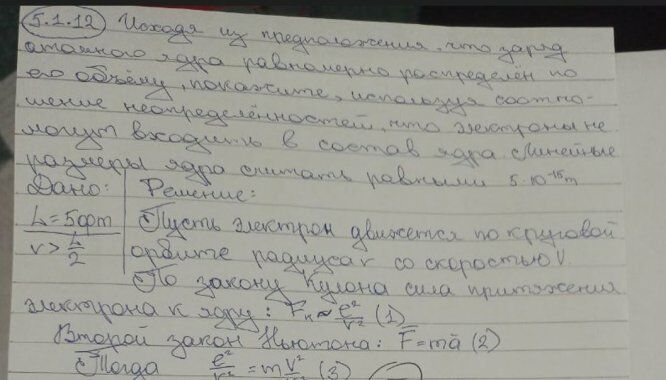 5.1.12 Исходя из предположения, что заряд
атомного ядра равномерно распределён по
его объёму, покажите, используя соотно-
шение неопределённостей, что электроны не
могут входить в состав ядра. Линейные
размеры ядра считать равными 5·10⁻¹⁵ m
Дано: Решение:
L = 5 фm Пусть электрон движется по круговой
r > L/2 орбите радиуса r со скоростью V.
По закону Кулона сила притяжения
электрона к ядру: Fк ≈ e²/r² (1)
Второй закон Ньютона: F̄ = mā (2)
Тогда e²/r² = m V²/r (3)